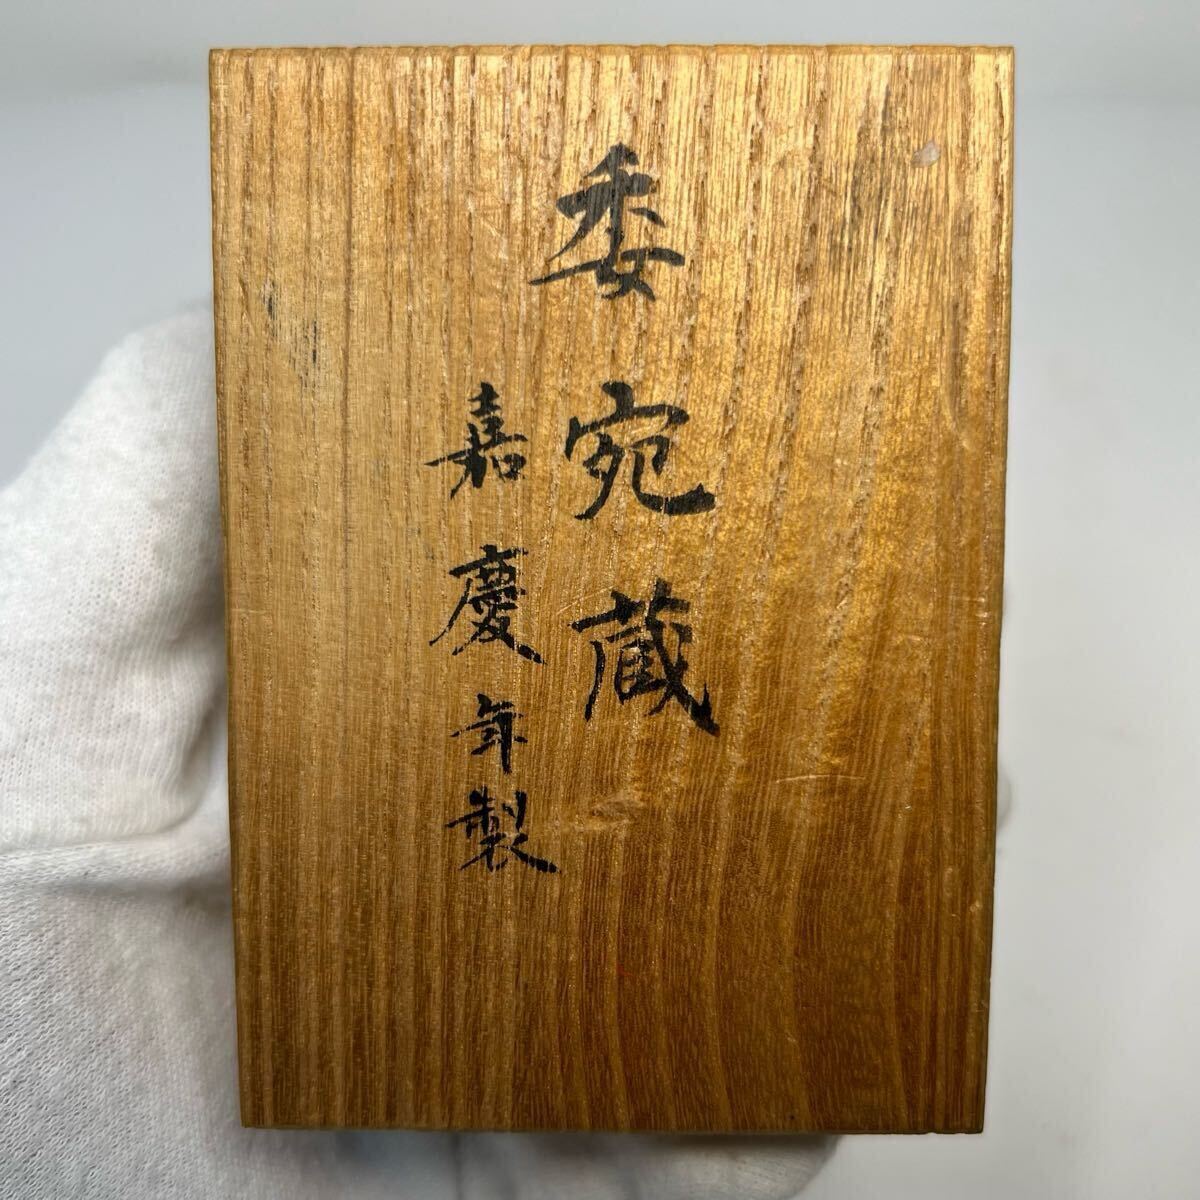 委宛蔵
嘉慶年製